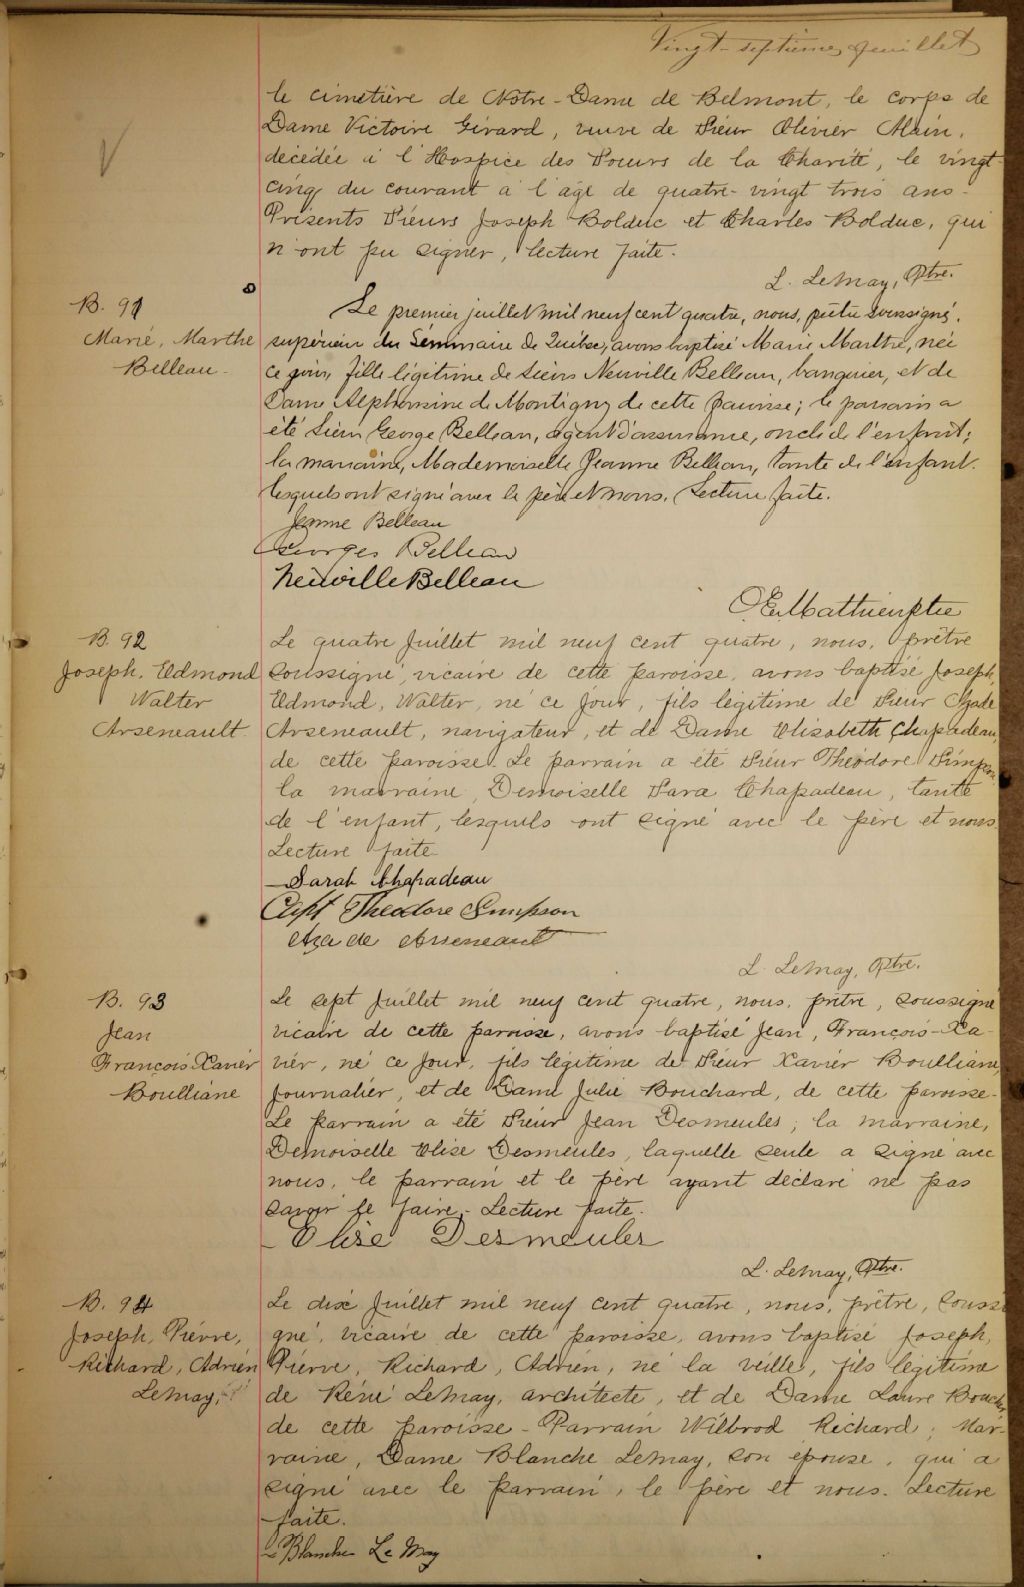 Vingt-septième feuillet
le cimetière de Notre-Dame de Belmont, le corps de
Dame Victoire Girard, veuve de Sieur Olivier Alain,
décédée à l'Hospice des Soeurs de la Charité, le vingt-
cinq du courant à l'âge de quatre-vingt trois ans-
Présents Sieurs Joseph Bolduc et Charles Bolduc, qui
n'ont pu signer, lecture faite.
L. Lemay, Ptre.
B. 91
Marie, Marthe
Belleau-
Le premier juillet mil neuf cent quatre, nous, prêtre soussigné,
supérieur du Séminaire de Québec, avons baptisé Marie Marthe, née
ce jour, fille légitime de Sieur Neuville Belleau, banquier, et de
Dame Alphonsine de Montigny de cette paroisse; le parrain a
été Sieur George Belleau, agent d'assurance, oncle de l'enfant;
la marraine, Mademoiselle Jeanne Belleau, tante de l'enfant.
lesquels ont signé avec le père et nous. Lecture faite.
Jeanne Belleau
Georges Belleau
Neuville Belleau
O E Mathieu ptre
B. 92
Joseph, Edmond
Walter
Arseneault
Le quatre Juillet mil neuf cent quatre, nous, prêtre
soussigné, vicaire de cette paroisse, avons baptisé Joseph,
Edmond, Walter, né ce jour, fils légitime de Sieur Azade
Arseneault, navigateur, et de Dame Elisabeth Chapadeau,
de cette paroisse. Le parrain a été Sieur Théodore Simpson
la marraine, Demoiselle Sara Chapadeau, tante
de l'enfant, lesquels ont signé avec le père et nous.
Lecture faite
Sarah Chapadeau
Capt Theodore Simpson
Azade Arseneault
L. Lemay, Ptre.
B. 93
Jean
François-Xavier
Boulliane
Le sept Juillet mil neuf cent quatre, nous, prêtre, soussigné
vicaire de cette paroisse, avons baptisé Jean, François-Xa-
vier, né ce jour, fils légitime de Sieur Xavier Boulliane,
journalier, et de Dame Julie Bouchard, de cette paroisse-
Le parrain a été Sieur Jean Desmeules; la marraine,
Demoiselle Elise Desmeules, laquelle seule a signé avec
nous, le parrain et le père ayant déclaré ne pas
savoir le faire;- Lecture faite.
Elise Desmeules
L. Lemay, Ptre.
B. 94
Joseph, Pierre,
Richard, Adrien
Lemay,
Le dix Juillet mil neuf cent quatre, nous, prêtre, soussi
gné, vicaire de cette paroisse, avons baptisé Joseph,
Pierre, Richard, Adrien, né la veille, fils légitime
de Réné Lemay, architecte, et de Dame Laure Boucher,
de cette paroisse- Parrain Wilbrod Richard; Mar-
raine, Dame Blanche Lemay, son épouse, qui a
signé avec le parrain, le père et nous. Lecture
faite.
Blanche Le May